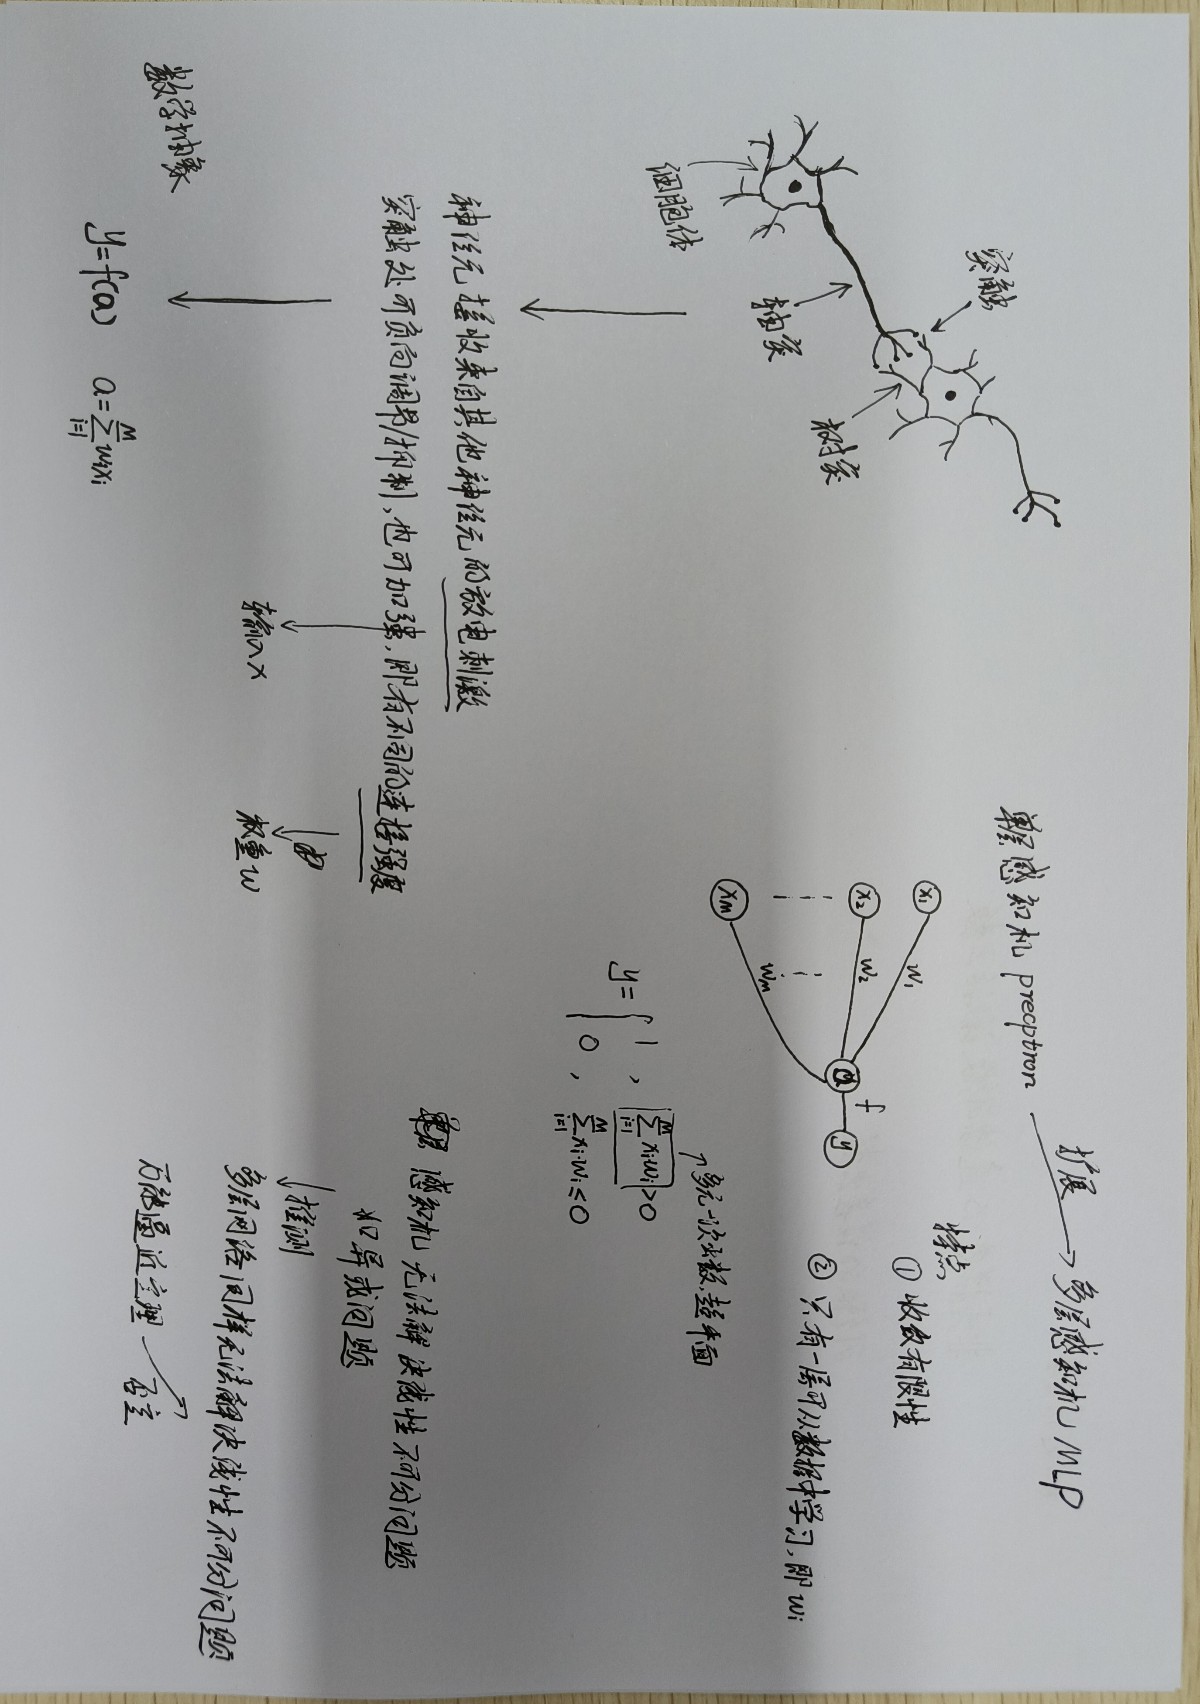 突触
树突
轴突
细胞体
神经元接收来自其他神经元的放电刺激
突触处可负向调节/抑制,也可加强,即有不同的连接强度
输入x
权重w
数学抽象
y=f(a) a=∑_{i=1}^{M}wixi
单层感知机 precptron
扩展
多层感知机 MLP
x1
w1
x2
w2
xM
wM
a
f
y
特点
① 收敛有限性
② 只有一层可从数据中学习,即wi
多元一次函数,超平面
y={
1 , ∑_{i=1}^{M}xiwi>0
0 , ∑_{i=1}^{M}xi·wi≤0
单层感知机无法解决线性不可分问题
如异或问题
推测
多层网络同样无法解决线性不可分问题
万能逼近定理
否定